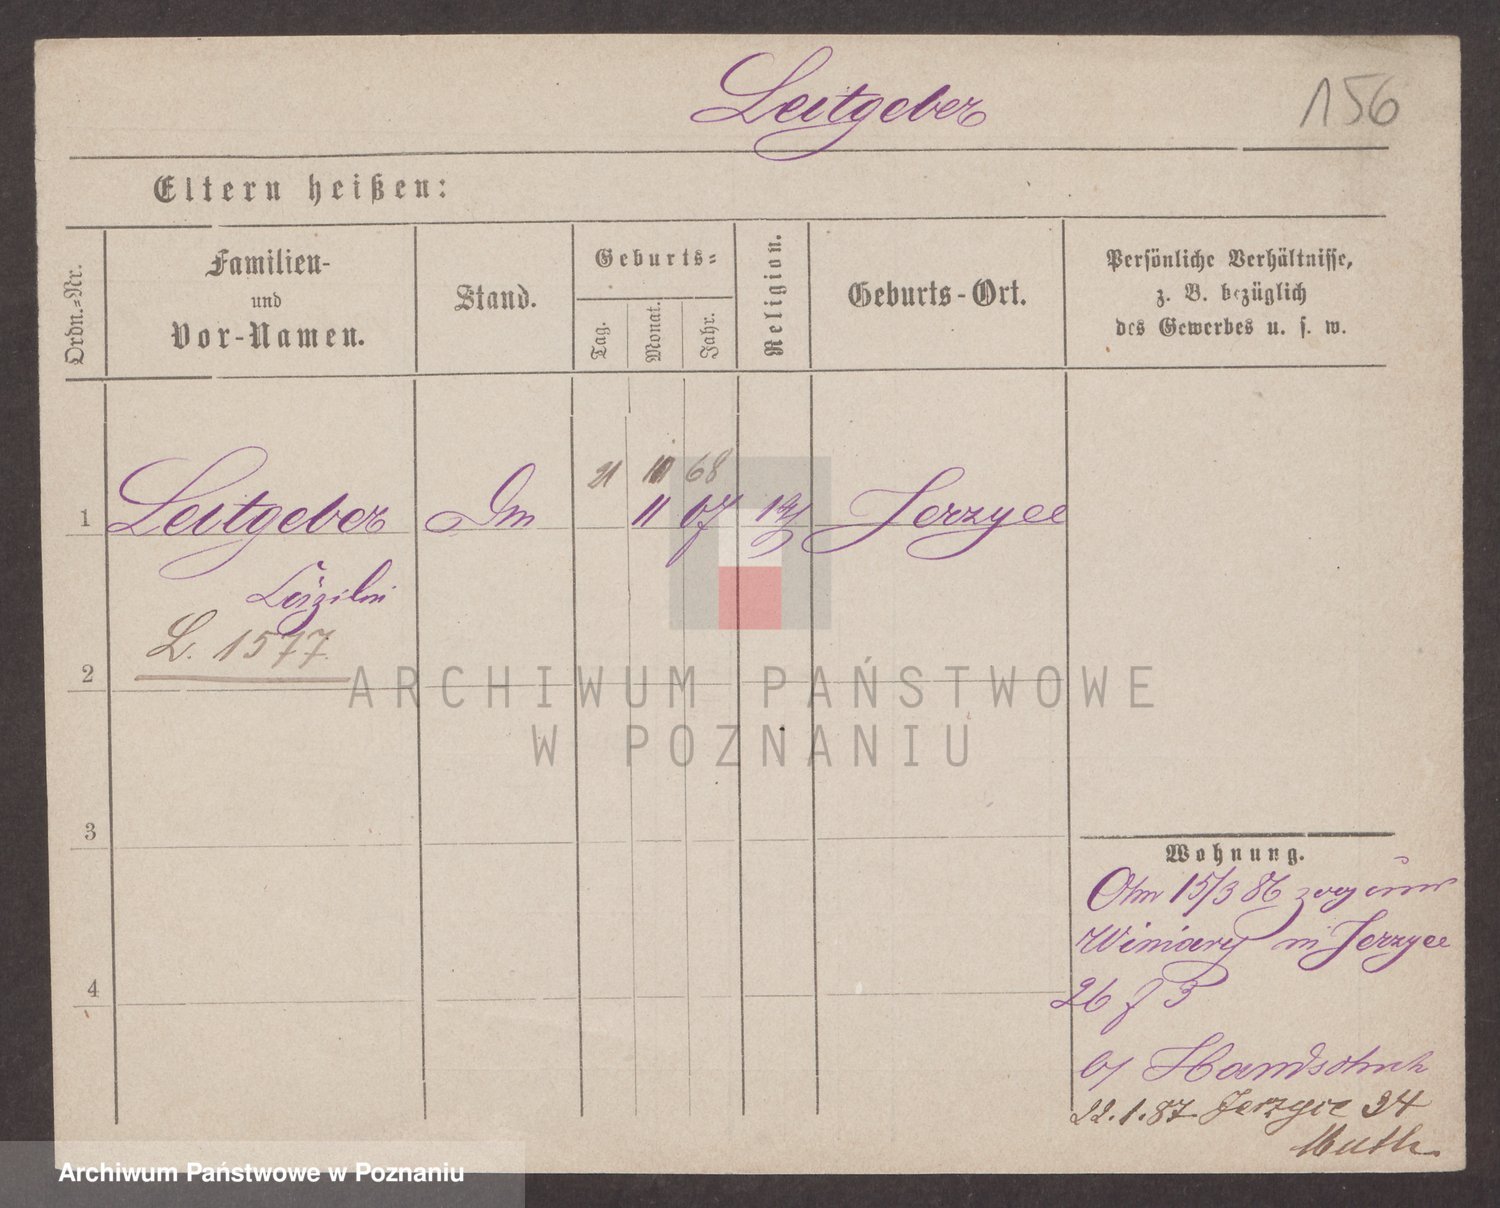 Leitgeber
156
Eltern heißen:
Ordn.-Nr.
Familien-
und
Vor-Namen.
Stand.
Geburts-
Tag.
Monat.
Jahr.
Religion.
Geburts-Ort.
Persönliche Verhältnisse,
z. B. bezüglich
des Gewerbes u. s. w.
21 10 68
1 Leitgeber 11 67 Jerzyce
L. 1577.
2
ARCHIWUM PAŃSTWOWE
W POZNANIU
3
Wohnung.
15/3 86
Winiary in Jerzyce
4
26 f 3
b/ Handschuh
22.1.87. Jerzyce 34
Muth.
Archiwum Państwowe w Poznaniu